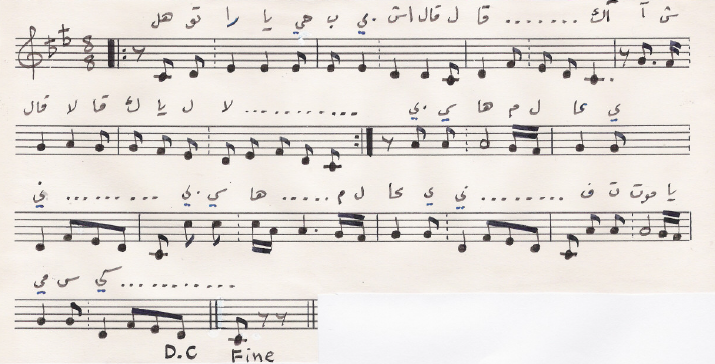 هل تو را يا حي ب بي اش قال ل قا ....... أك آ ش
8
8
قال لا قا ك يا ل لا ........... بي سي ها م ل عا ي
ني ......... بي سي ها ..... م ل عا ي ني ........ ف ت موت يا
مي س كي ...........
D.C Fine